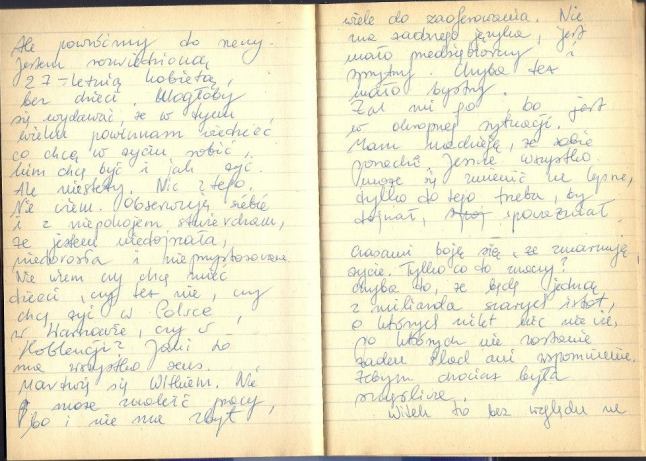 Ale powróćmy do sceny.
Jestem rozwiedzioną
27-letnią kobietą,
bez dzieci. Mogłoby
się wydawać, że w tym
wieku powinnam wiedzieć
co chcę w życiu robić,
kim chcę być i jak żyć.
Ale niestety. Nic z tego.
Nie wiem. Obserwuję siebie
i z niepokojem stwierdzam,
że jestem niedojrzała,
niedorosła i nieprzystosowana.
Nie wiem czy chcę mieć
dzieci, czy też nie, czy
chcę żyć w Polsce,
w Warszawie, czy w
Koblencji? Jaki to
ma wszystko sens.
Martwię się Witkiem. Nie
może znaleźć pracy,
bo i nie ma zbyt
wiele do zaoferowania. Nie
zna żadnego języka, jest
mało przedsiębiorczy i
sprytny. Chyba też
mało bystry.
Żal mi go, bo jest
w okropnej sytuacji.
Mam nadzieję, że sobie
poradzi. Jeszcze wszystko
może się zmienić na lepsze,
tylko do tego trzeba, by
dojrzał, spoważniał.
Czasami boję się, że zmarnuję
życie. Tylko co to znaczy?
Chyba to, że będę jedną
z miliarda szarych istot,
o których nikt nic nie wie,
po których nie zostanie
żaden ślad ani wspomnienie.
Żebym chociaż była
szczęśliwa.
Witek to bez względu na